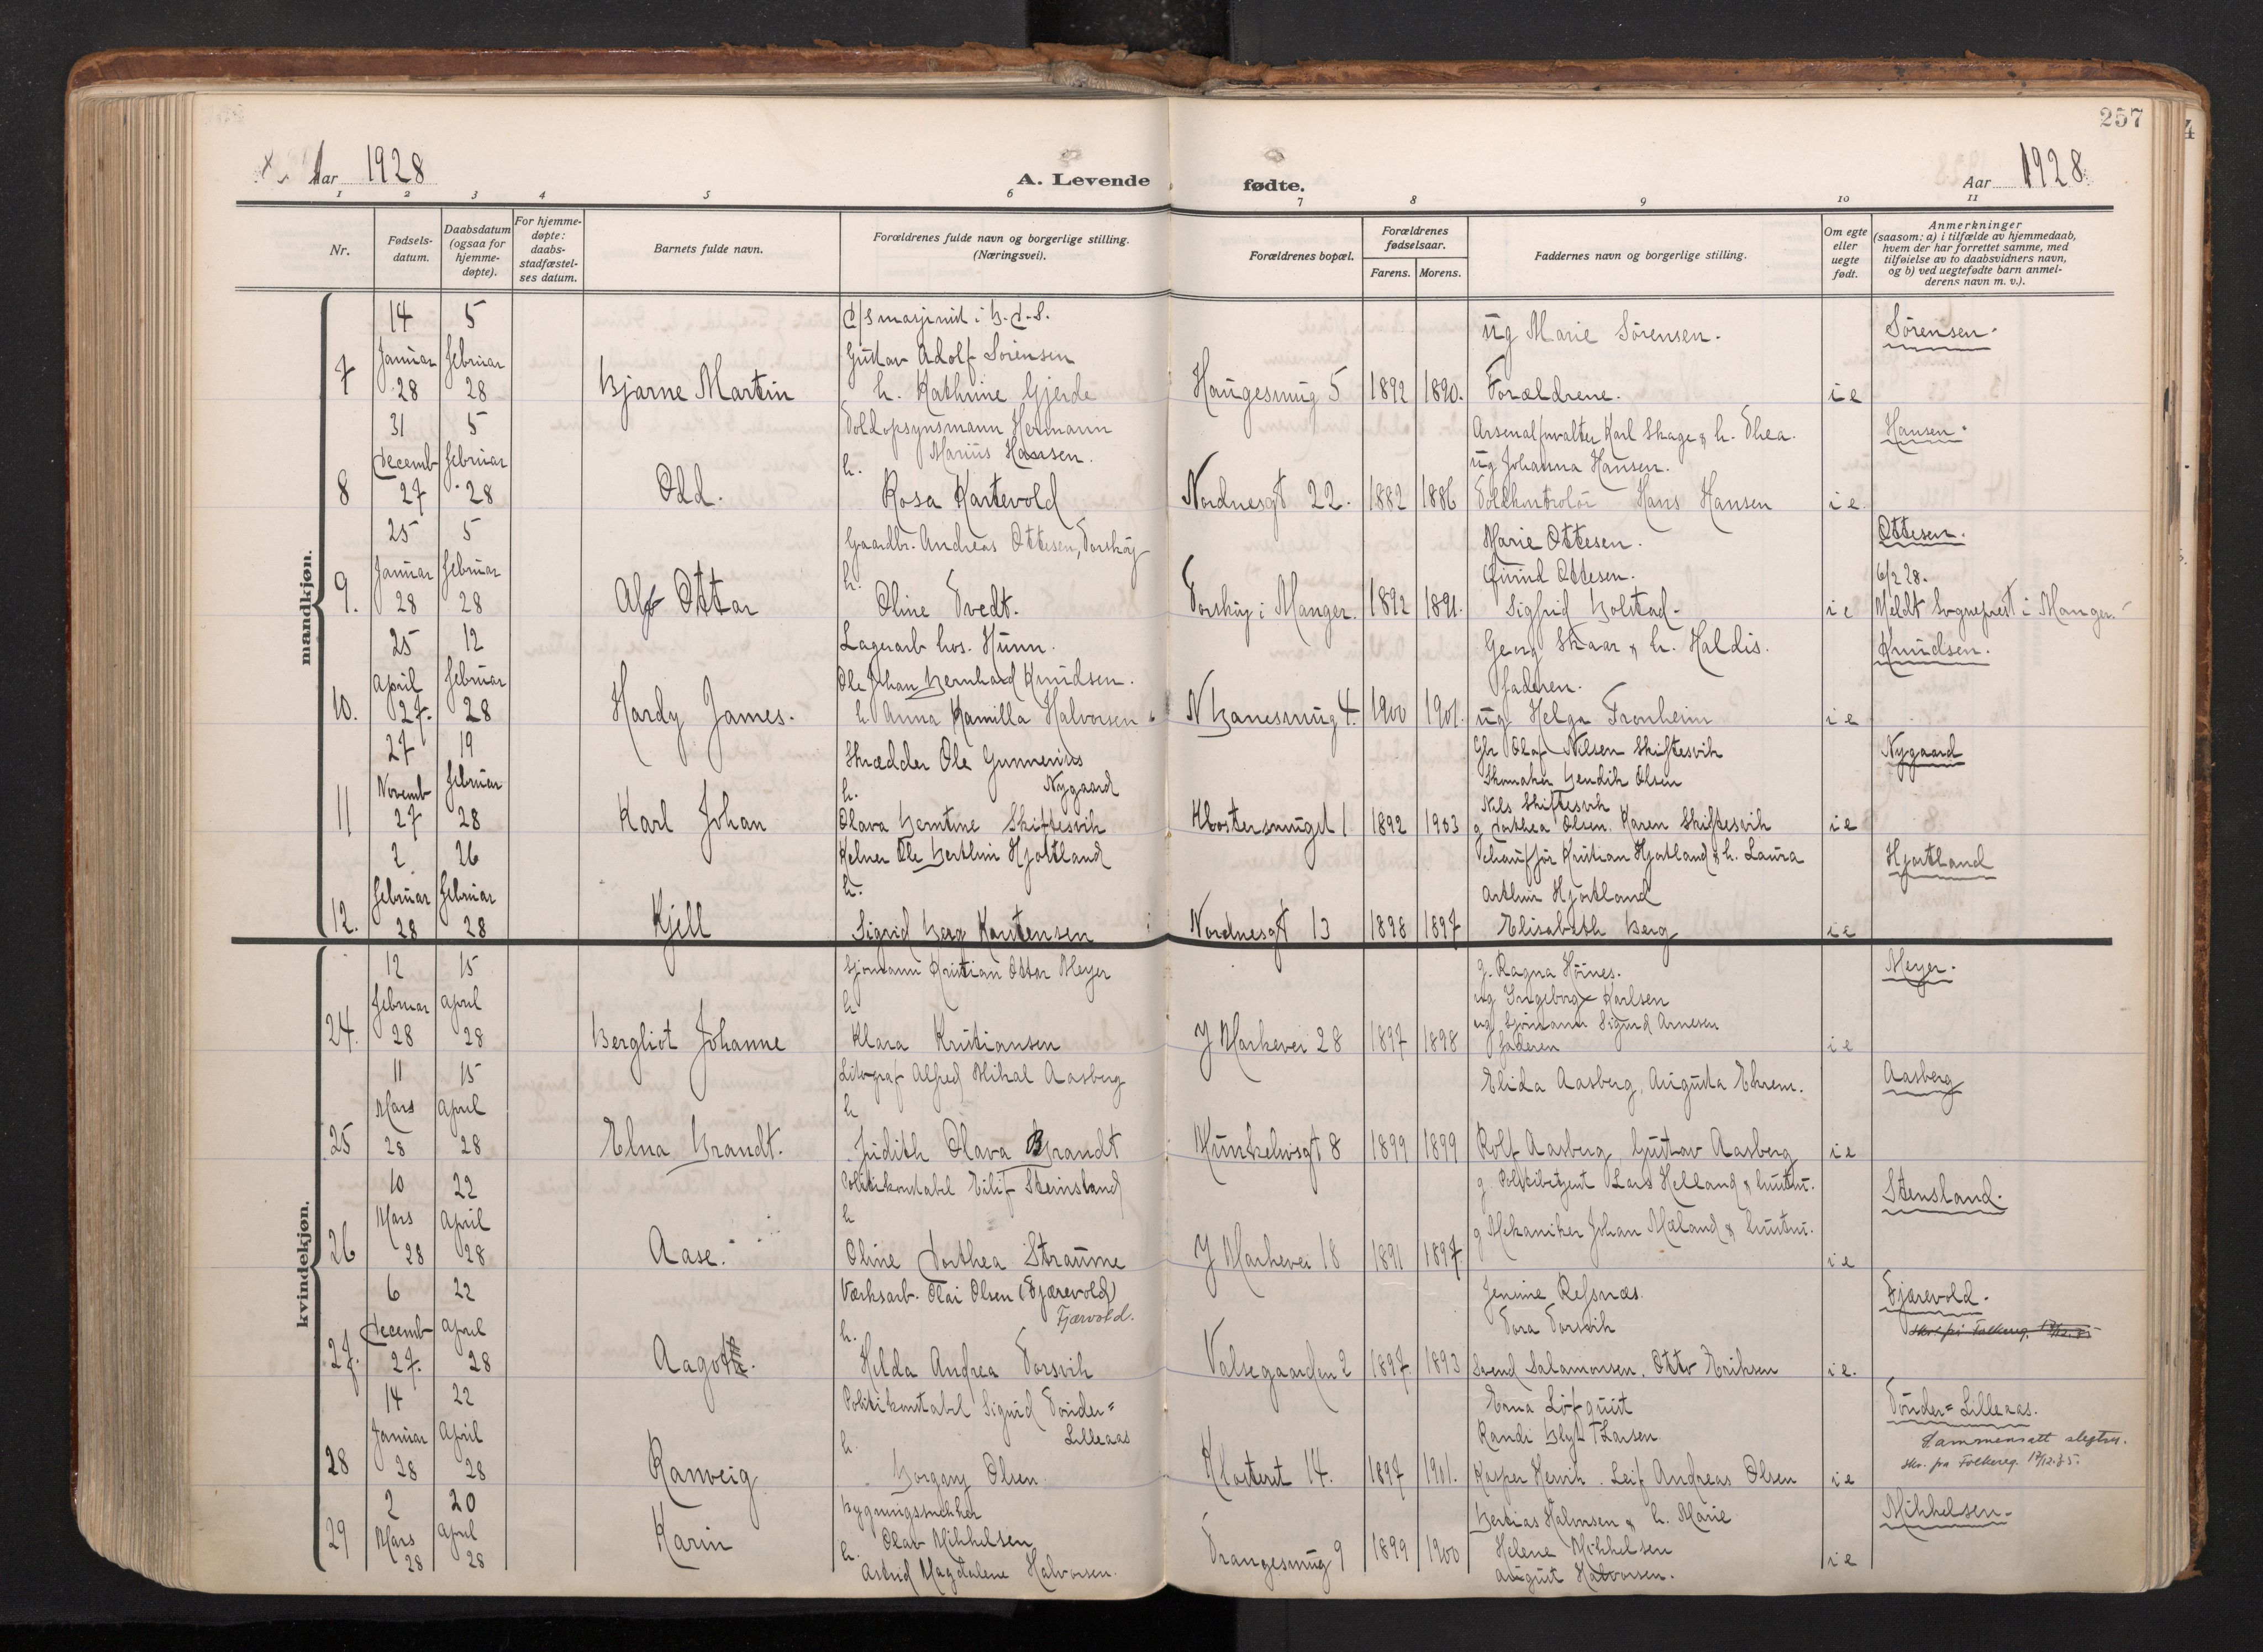 257
Aar 1928
A. Levende fødte.
Aar 1928
1 2 3 4 5 6 7 8 9 10 11
Nr.
Fødsels-
datum.
Daabsdatum
(ogsaa for
hjemme-
døpte).
For hjemme-
døpte:
daabs-
stadfæstel-
ses datum.
Barnets fulde navn.
Forældrenes fulde navn og borgerlige stilling.
(Næringsvei).
Forældrenes bopæl.
Forældrenes
fødselsaar.
Farens. Morens.
Faddernes navn og borgerlige stilling.
Om egte
eller
uegte
født.
Anmerkninger
(saasom: a) i tilfælde av hjemmedaab,
hvem der har forrettet samme, med
tilføielse av to daabsvidners navn,
og b) ved uegtefødte barn anmel-
derens navn m. v.).
mandkjøn.
7
14
Januar
28
5
Februar
28
Bjarne Martin
Gustav Adolf Sørensen
h. Kathrine Gjerde
Haugesmug 5
1892 1890.
ug Marie Sørensen.
Forældrene.
i e
Sørensen.
8
31
Decemb
27
5
Februar
28
Odd.
Toldopsynsmann Hermann
Marius Hansen.
h.
Rosa Kartevold
Nordnesgt 22.
1882 1886
Arsenalforvalter Karl Skage & h. Thea.
ug Johanna Hansen.
Toldkontrolør Hans Hansen
i e
Hansen.
9.
25
Januar
28
5
Februar
28
Alf Ottar
Gaardbr. Andreas Ottesen, Torskøy
h.
Oline Tvedt.
Torskøy i Manger.
1892 1891.
Marie Ottesen.
Øivind Ottesen.
Sigfrid Bolstad.
i e
Ottesen.
6/2 28.
Meldt Sogneprest i Manger.
10.
25
April
27.
12
Februar
28
Hardy James.
Lagerarb hos. Hunn.
Ole Johan Bernhard Knudsen.
h. Anna Kamilla Halvorsen
N Banesmug 4.
1900 1901.
Georg Skaar & h. Haldis.
faderen.
ug Helga Tronheim
i e
Knudsen.
11
27
Novemb
27
19
Februar
28
Karl Johan
Skrædder Ole Gunnerius
Nygaard
h.
Olava Berntine Skiftesvik
Klostersmuget 1
1892 1903
Gbr Olaf Nilsen Skiftesvik
Skomaker Bendik Olsen
Nils Skiftesvik
g Dorthea Olsen. Karen Skiftesvik
i e
Nygaard
12.
2
Februar
28
26
Februar
28
Kjell
Kelner Ole Berthin Hjortland
h.
Sigrid Berg Karstensen
Nordnesgt 13
1898 1897
Chauffør Kristian Hjortland & h. Laura
Arthur Hjortland
Elisabeth Berg
i e
Hjortland
kvindekjøn.
24.
12
Februar
28
15
April
28
Bergliot Johanne
Sjømann Kristian Ottar Meyer
h
Klara Kristiansen
Y Markevei 28
1897 1898
g. Ragna Høines.
ug Ingeborg Karlsen
ug Sjømann Sigurd Arnesen
faderen
i e
Meyer.
25
11
Mars
28
15
April
28
Elna Brandt.
Litograf Alfred Mikal Aasberg
h
Judith Olava Brandt
Munkebisgt 8
1899 1899
Elida Aasberg, Augusta Ehrem.
Rolf Aasberg, Gustav Aasberg
i e
Aasberg
26
10
Mars
28
22
April
28
Aase.
Politikonstabel Eilif Steinsland
h
Oline Dorthea Straume
Y Markevei 18
1891 1897.
g Politibetjent Lars Helland & hustru.
g Mekaniker Johan Mæland & hustru.
i e
Stensland.
27.
6
Decemb
27.
22
April
28
Aagot.
Værksarb. Olai Olsen (Fjærevold)
Fjærvold.
h.
Helda Andrea Torsvik
Valsegaarden 2
1897. 1893
Jenine Refsnæs.
Tora Torsvik
Svend Salamonsen. Otto Eriksen
i e.
Fjærevold.
skr. på Folkereg. 17/12.35
28
14
Januar
28
22
April
28
Ranveig
Politikonstabel Sigurd Tønder=
Lilleaas
h.
Borgany Olsen
Klosteret 14.
1897 1901.
Erna Löfquist
Randi Blydt Larsen
Kasper Henrik. Leif Andreas Olsen
i e
Tønder=Lilleaas.
Sammensatt slegtsn.
skr. på Folkereg. 17/12.35.
29
2
Mars
28
20
April
28
Karin
Bygningssnekker
Olav Mikkelsen
h.
Astrid Magdalene Halvorsen.
Trangesmug 9
1899 1900
Bertias Halvorsen & h. Marie
Helene Mikkelsen
August Halvorsen.
i e
Mikkelsen.